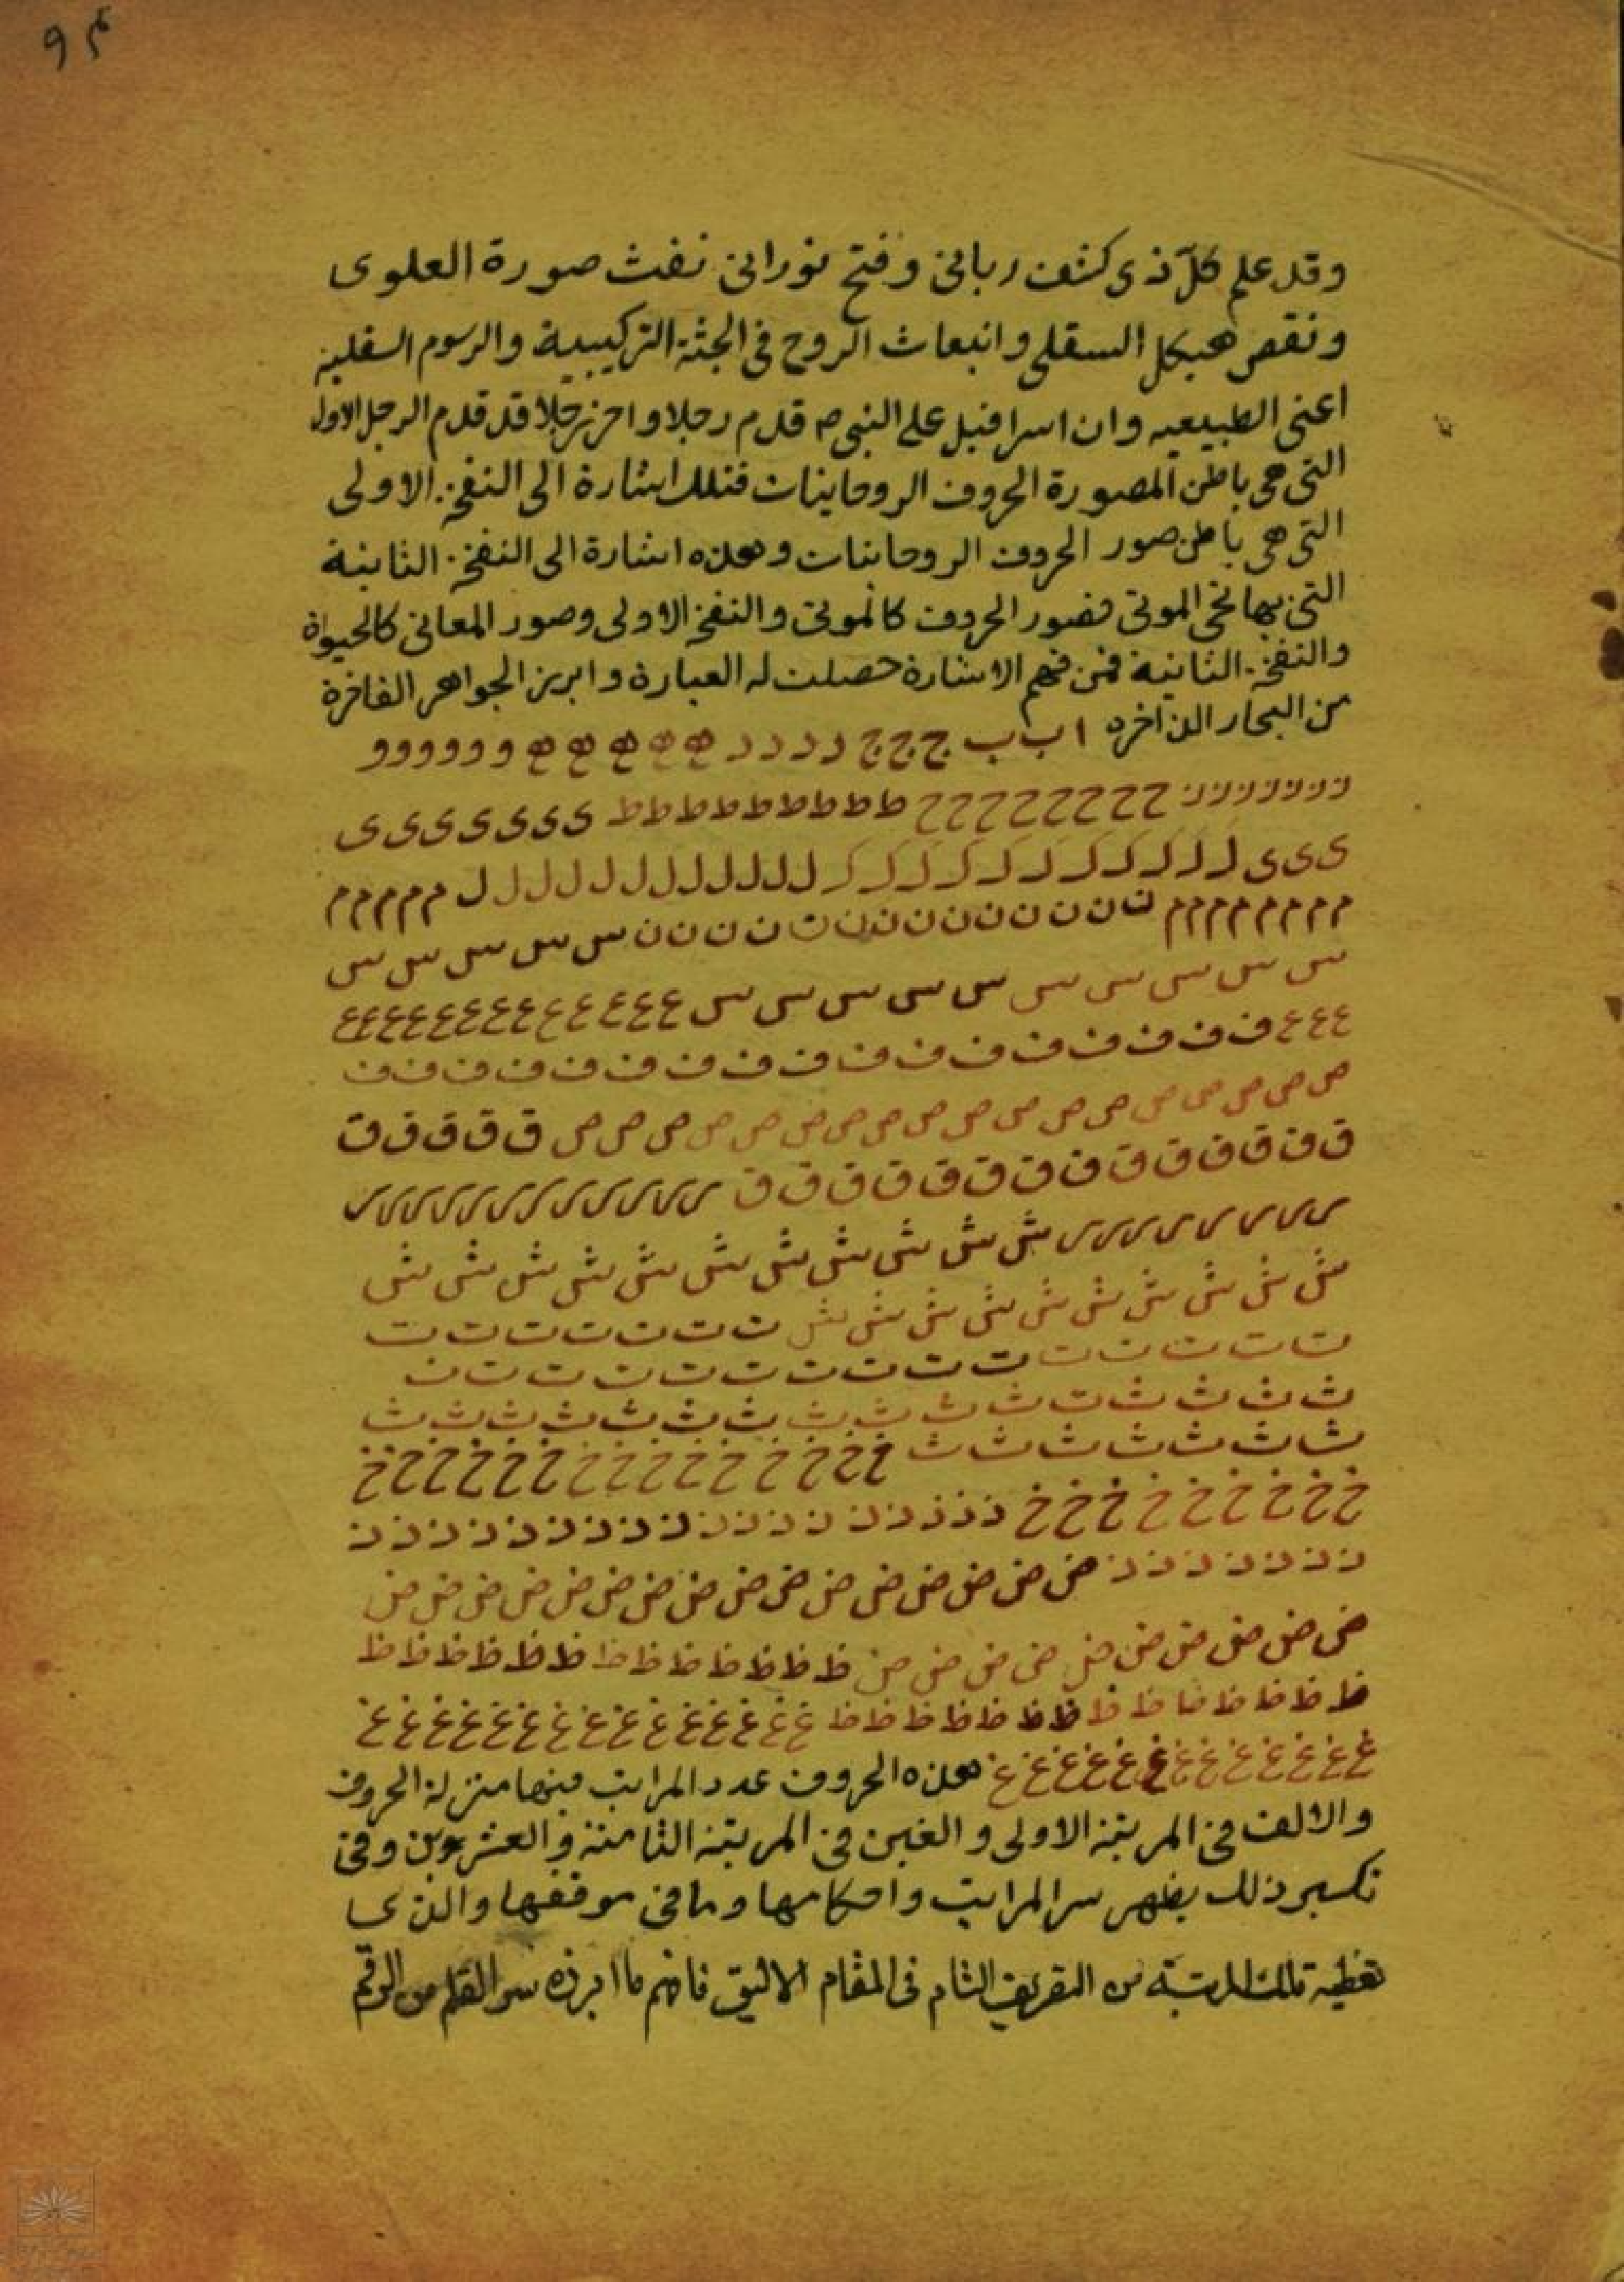 وقد علم كلّ ذى كشف ربانى وفتح نورانى نفث صورة العلوى
ونقص هيكل السقلى وانبعاث الروح فى الجثة التركيبية والرسوم السفلية
اعنى الطبيعيه وان اسرافيل على النبى م قدم رجلا واخر رجلا قد قدم الرجل الاول
التى هى باطن المصورة الحروف الروحاينات فتلك اشارة الى النفخة الاولى
التى هى باطن صور الحروف الروحاينات وهذه اشارة الى النفخة الثانية
التى بها تحى الموتى فصور الحروف كالموتى والنفخة الاولى وصور المعانى كالحيواة
والنفخة الثانية فمن فهم الاشارة حصلت له العبارة وابريز الجواهر الفاخرة
من البحار الذاخره ا ب ب ج ج ج د د د د ه ه ه ه ه و و و و و و
ز ز ز ز ز ز ز ح ح ح ح ح ح ح ح ط ط ط ط ط ط ط ط ط ى ى ى ى ى ى ى
ى ى ى ك ك ك ك ك ك ك ك ك ك ك ل ل ل ل ل ل ل ل ل ل ل ل م م م م م
م م م م م م م م ن ن ن ن ن ن ن ن ن ن ن ن ن ن س س س س س
س س س س س س س س س س ع ع ع ع ع ع ع ع ع ع ع ع ع
ع ع ع ف ف ف ف ف ف ف ف ف ف ف ف ف ف ف ف ف
ص ص ص ص ص ص ص ص ص ص ص ص ص ص ص ص ص ص ق ق ق ق ق
ق ق ق ق ق ق ق ق ق ق ق ق ق ق ر ر ر ر ر ر ر ر ر ر ر ر
ر ر ر ر ر ر ر ر ش ش ش ش ش ش ش ش ش ش ش
ش ش ش ش ش ش ش ش ش ش ت ت ت ت ت ت ت
ت ت ت ت ت ت ت ت ت ت ت ت ت ت ت
ث ث ث ث ث ث ث ث ث ث ث ث ث ث ث ث
ث ث ث ث ث ث ث خ خ خ خ خ خ خ خ خ خ خ خ خ خ خ
خ خ خ خ خ خ خ خ خ ذ ذ ذ ذ ذ ذ ذ ذ ذ ذ ذ ذ ذ ذ ذ ذ ذ ذ
ذ ذ ذ ذ ذ ذ ذ ض ض ض ض ض ض ض ض ض ض ض ض ض ض ض ض
ض ض ض ض ض ض ض ض ض ض ظ ظ ظ ظ ظ ظ ظ ظ ظ ظ ظ ظ ظ
ظ ظ ظ ظ ظ ظ ظ ظ ظ ظ ظ ظ ظ ظ غ غ غ غ غ غ غ غ غ غ غ غ غ غ غ
غ غ غ غ غ غ غ غ غ غ غ غ غ هذه الحروف عدد المراتب فينها منزلة الحروف
والالف فى المرتبة الاولى والغين فى المرتبة الثامنة والعشروين وفى
تكسير ذلك يظهر سر المراتب واحكامها وما فى موقفها والذى
تعطية تلك المرتبة من التعريف التام فى المقام الاليق فافهم ما ابرزه سر القلم من الرقم